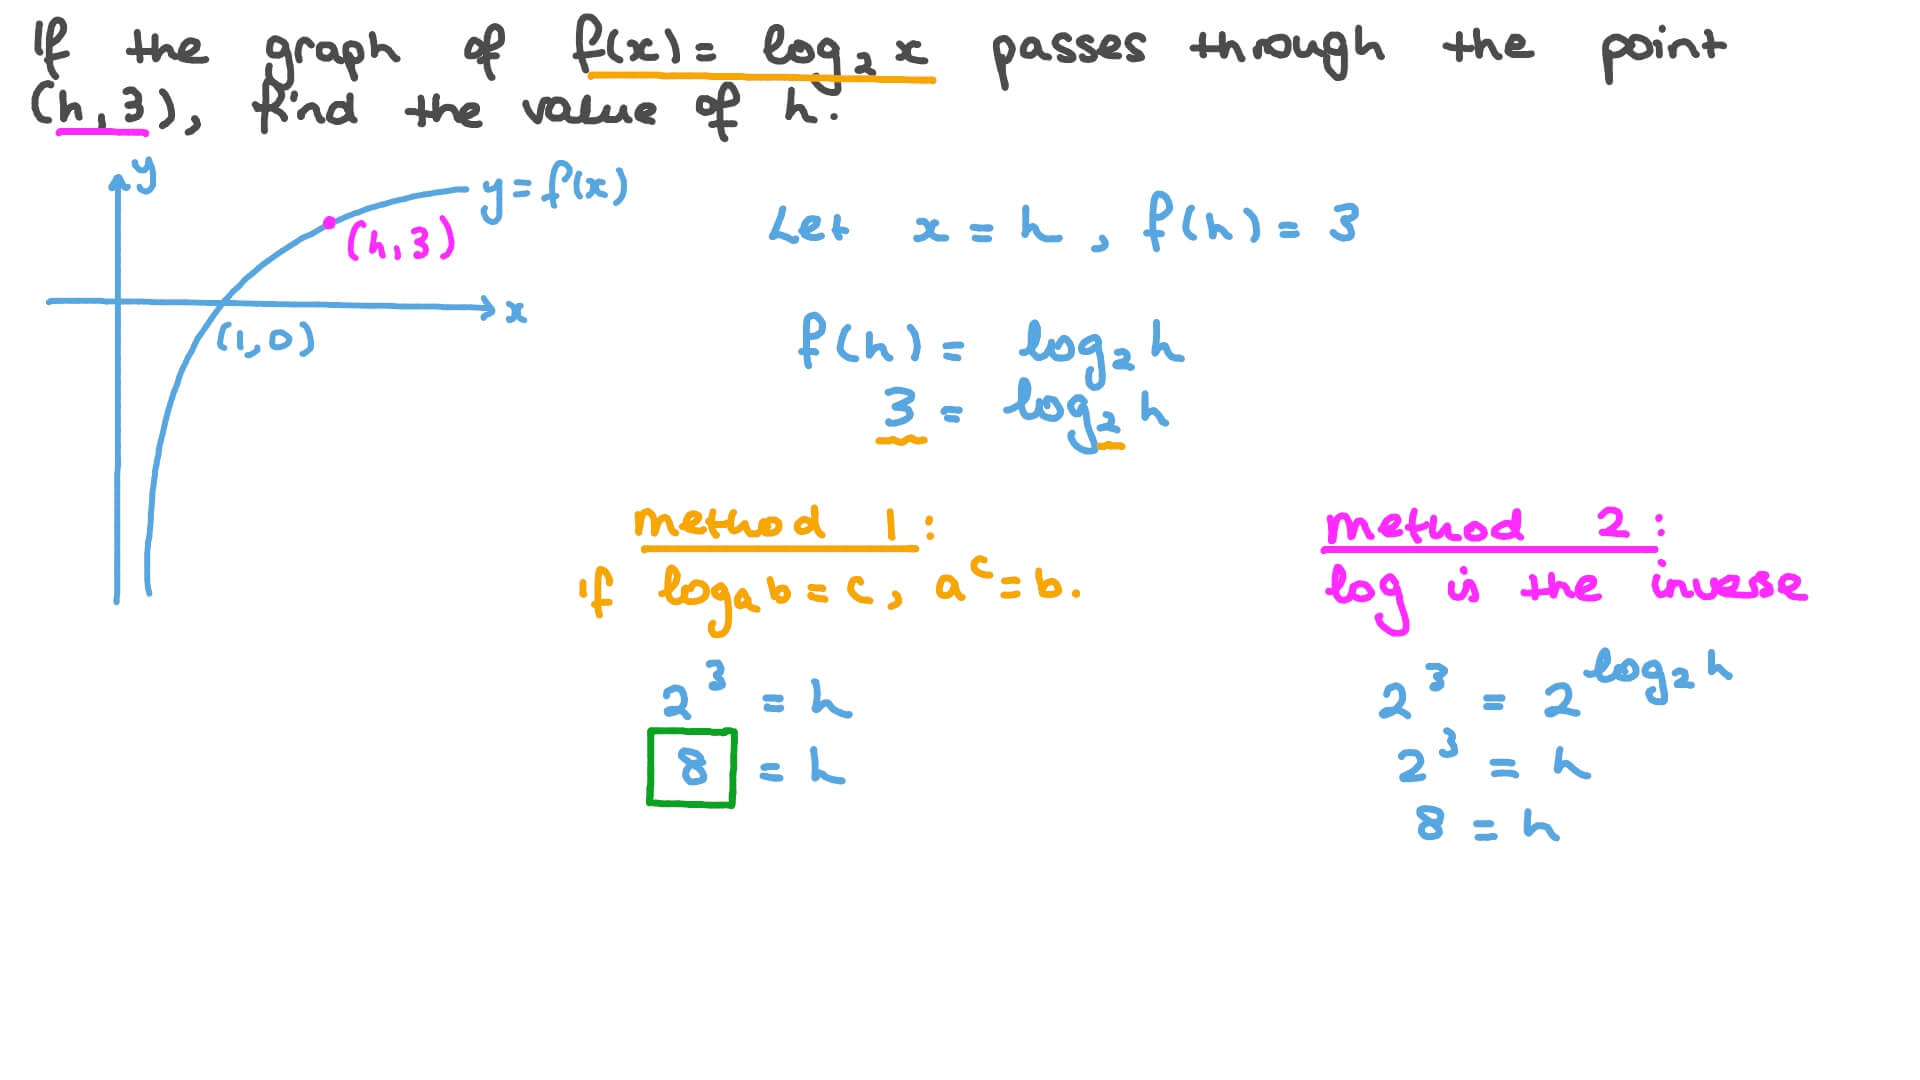 If the graph of f(x) = log₂ x passes through the point
(h, 3), find the value of h.
y
y = f(x)
(h, 3)
x
(1, 0)
Let x = h, f(h) = 3
f(h) = log₂ h
3 = log₂ h
method 1:
if logₐ b = c, aᶜ = b.
2³ = h
8 = h
method 2:
log is the inverse
2³ = 2^log₂ h
2³ = h
8 = h